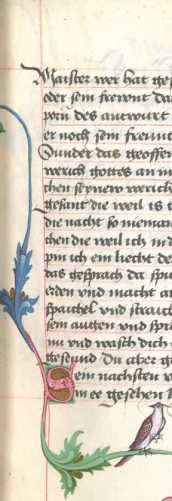 Maister wer hat ges
oder sein frewnt da
worn des antwurt
er noch sein freunt
Sunder das geoffen
werich gottes an in
chen seynew werich
gesant die weil es t
die nacht so nieman
chen die weil ich in d
pin ich ein liecht de
das gesprach der spu
erden vnd macht a
spaichel vnd straich
sein augen vnd spr
in vnd wasch dich
gesund Du aber g
ein nachsten v
mee geschen